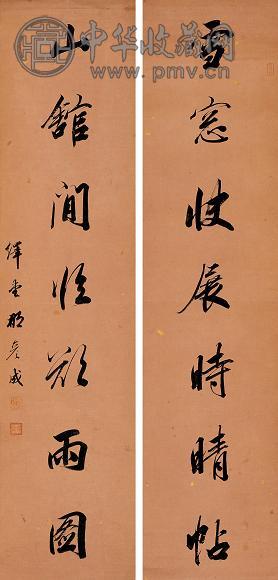 中华收藏网
www.pmv.cn
雪窓快展時晴帖
山館閒臨欲雨圖
繹堂那彥成